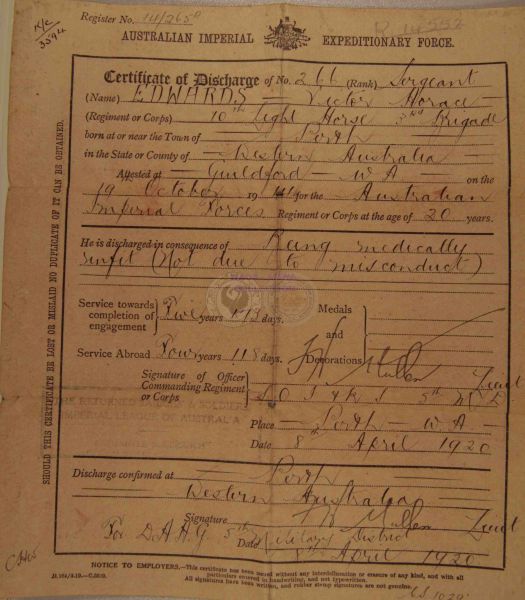 K/c
3394
Register No. 14/265
AUSTRALIAN IMPERIAL EXPEDITIONARY FORCE.
Certificate of Discharge of No. 266 (Rank) Sergeant
(Name) EDWARDS Victor Horace
(Regiment or Corps) 10th Light Horse 3rd Brigade
born at or near the Town of Perth
in the State or County of Western Australia
Attested at Guildford W A on the
19 October 19 for the Australian
Imperial Forces Regiment or Corps at the age of 20 years.
He is discharged in consequence of Being medically
unfit (Not due to misconduct)
Service towards completion of engagement Five years 173 days.
Service Abroad Four years 118 days.
Medals and Decorations
Signature of Officer Commanding Regiment or Corps Mullen Lieut
5th M D
Place Perth W A
Date 8th April 1920
THE RETURNED SOLDIERS
IMPERIAL LEAGUE OF AUSTRALIA
Discharge confirmed at Perth
Western Australia
Signature Mullen Lieut
For D.A.A.G 5th Military District
Date 8th April 1920
SHOULD THIS CERTIFICATE BE LOST OR MISLAID NO DUPLICATE OF IT CAN BE OBTAINED.
NOTICE TO EMPLOYERS.—This certificate has been issued without any interdelineation or erasure of any kind, and with all
particulars entered in handwriting, and not typewritten.
All signatures have been written, and rubber stamp signatures are not genuine.